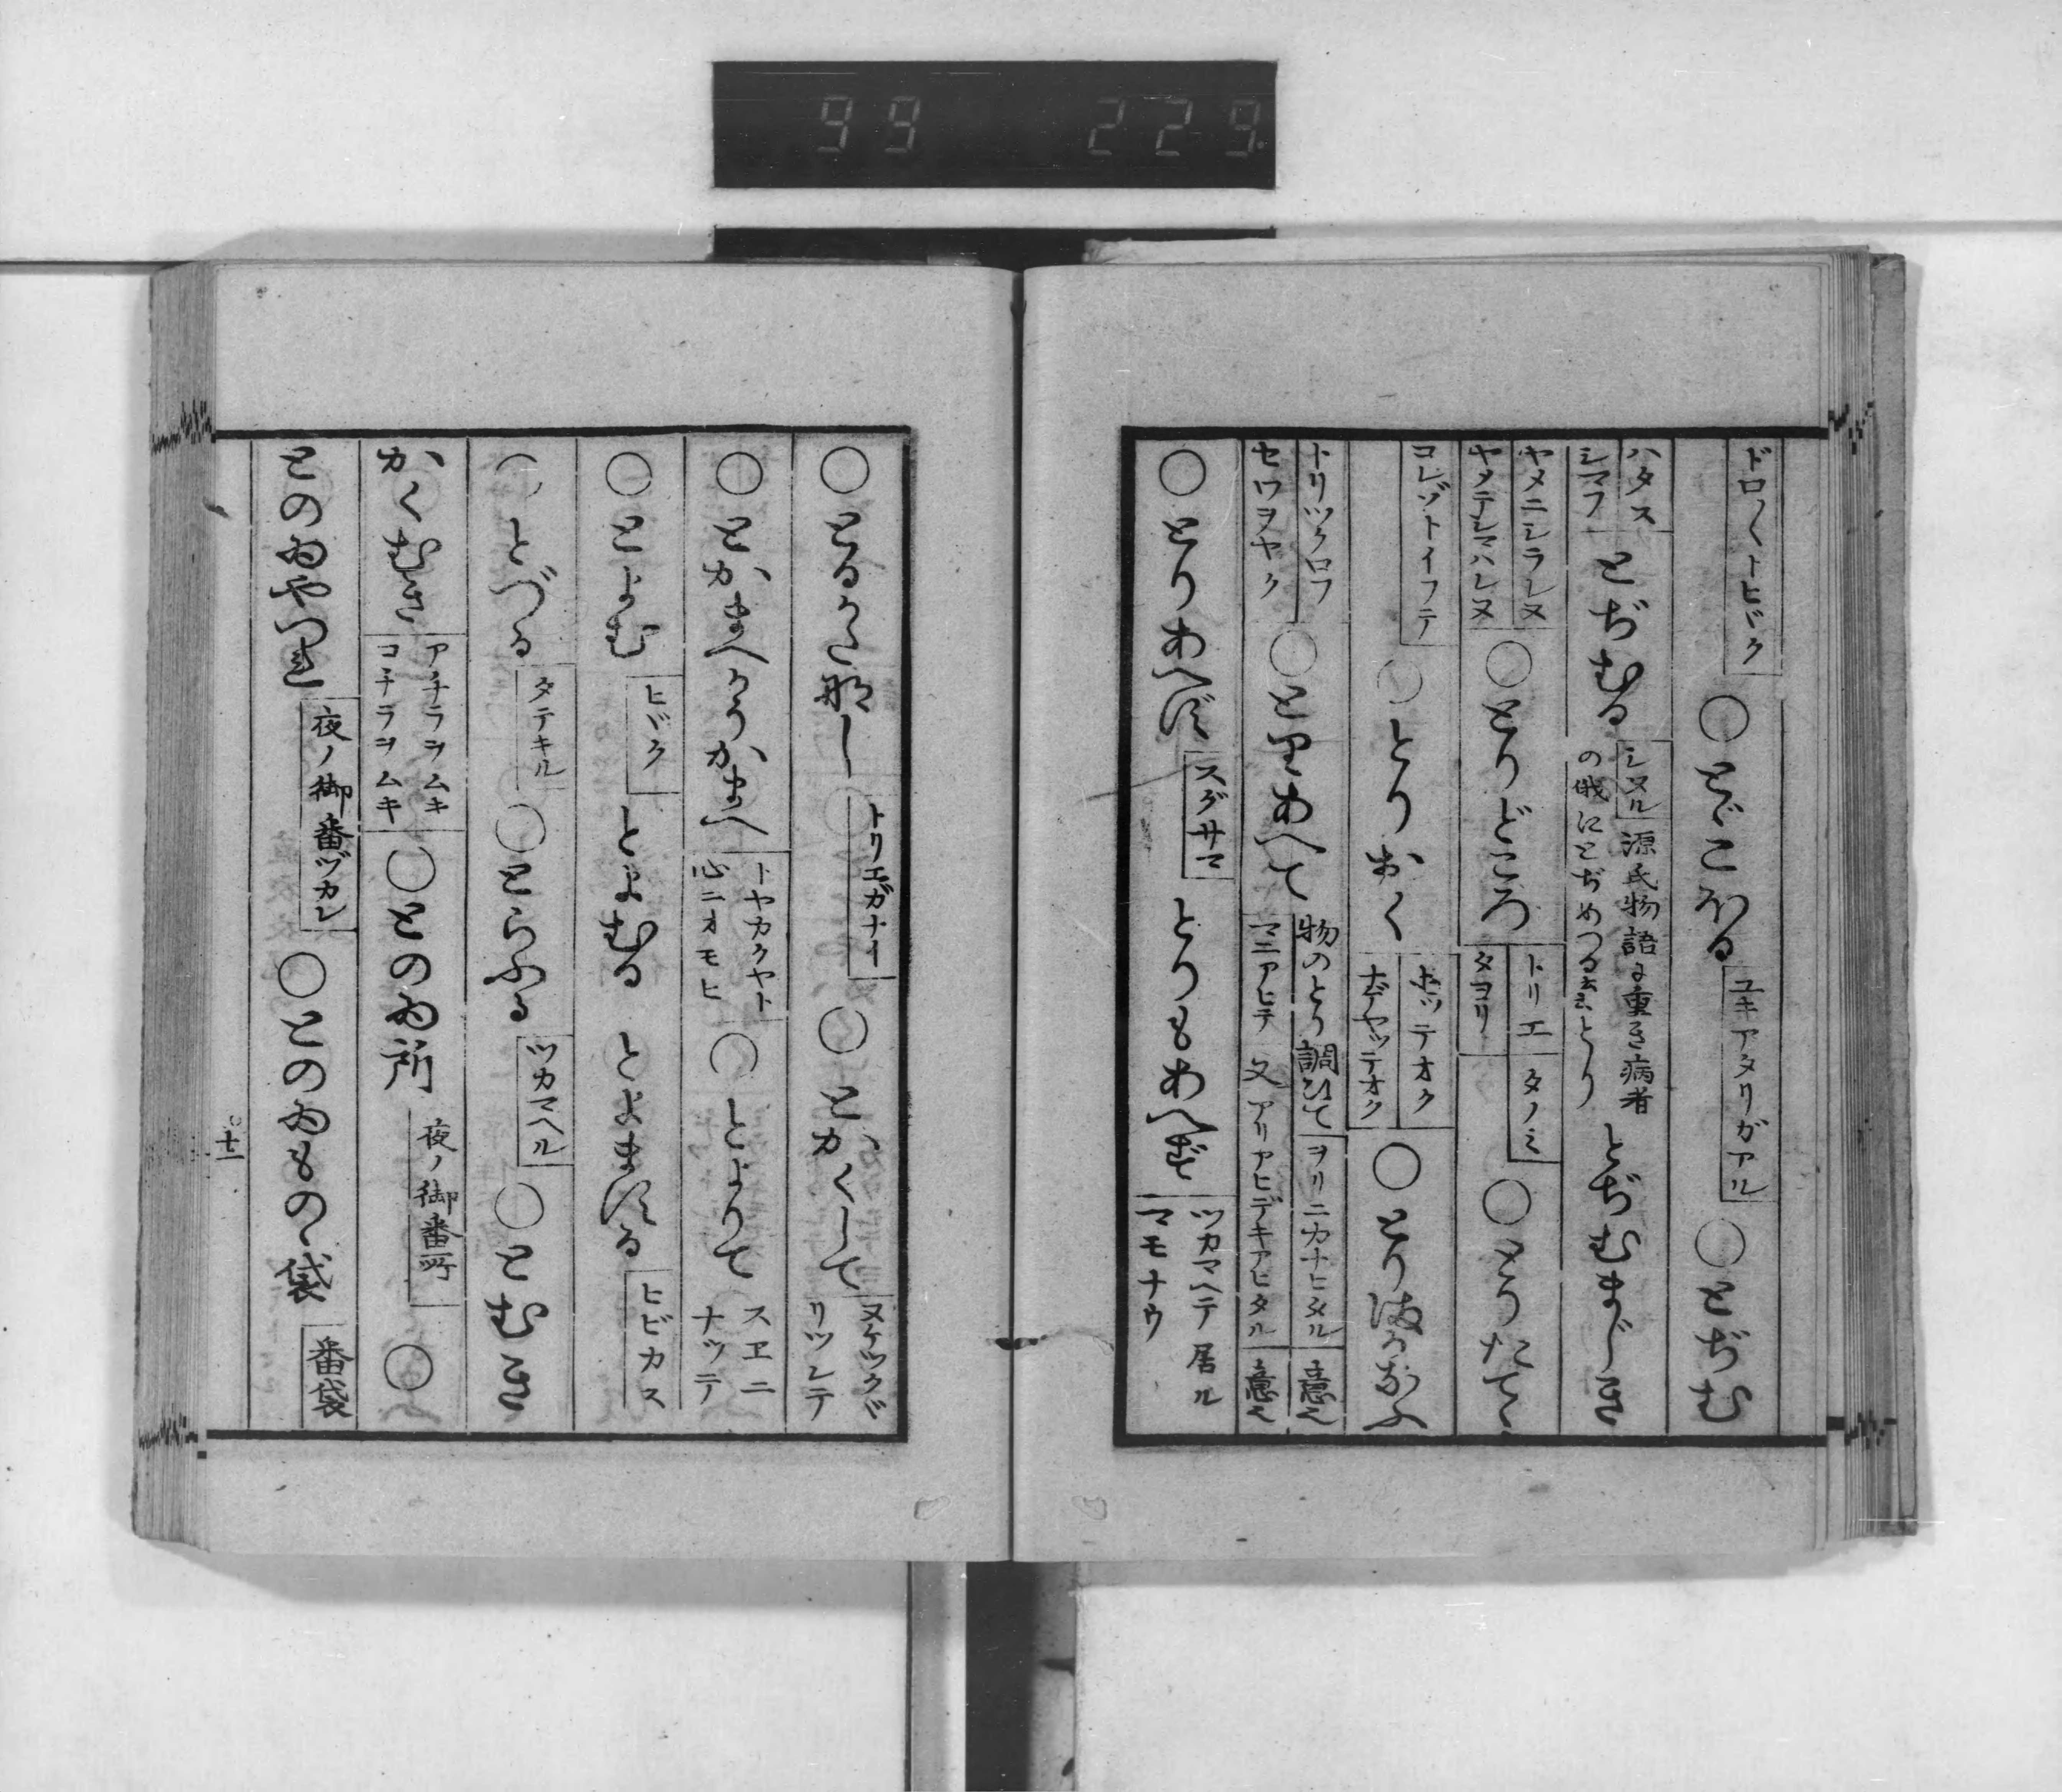 99 229
ドロ〱トヒヾク ○とゞこほる ユキアタリガアル ○とぢむ
ハタス シマフ とぢむる シヌル 源氏物語に重き病者の俄にとぢめつる云々とり とぢむまじき
ヤメニシラレヌ ヤメテシマハレヌ ○とりどころ トリエ タヨリ タノミ ○とりたてゝ
コレゾトイフテ ○とりおく ホツテオク ナデヤツテオク ○とりまかなふ
トリツクロフ セワヲヤク ○とりあへて 物のとり調ひて マニアヒテ 又 ヲリニカナヒタル アリアヒデキアヒタル 意也 意也
○とりあへず スグサマ とりもあへず ツカマヘテ居ル マモナウ
○とるかた那し トリエガナイ ○とかくして ヌケツクヾリツシテ
○とかまへかうかまへ トヤカクヤト 心ニオモヒ ○とよりて スヱニナツテ
○とよむ ヒヾク とよむる とよまする ヒビカス
○とづる タテキル ○とらふる ツカマヘル ○とむき
かくむき アチラヲムキ コチラヲムキ ○とのゐ所 夜ノ御番所 ○
とのゐやつれ 夜ノ御番ヅカレ ○とのゐもの袋 番袋
十一